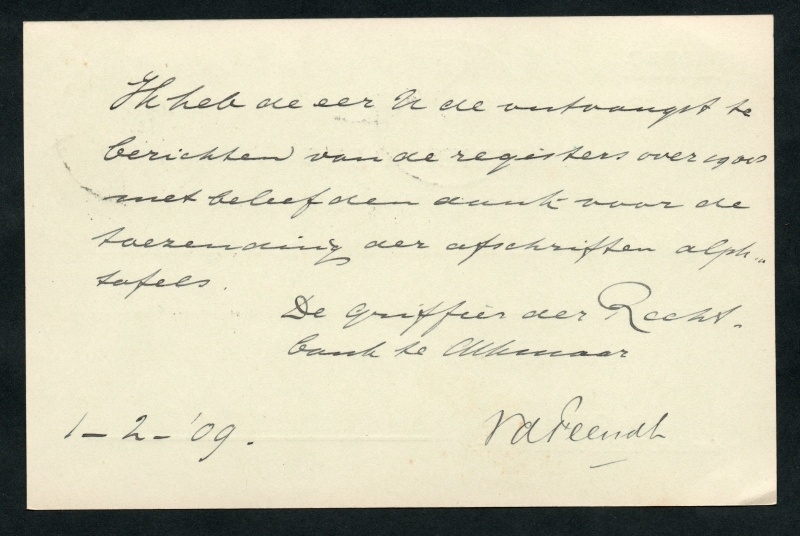 Ik heb de eer U de ontvangst te
berichten van de registers over 1908
met beleefden dank voor de
toezending der afschriften alph..
tafels.
De Griffier der Recht-
bank te Alkmaar
1-2-'09.